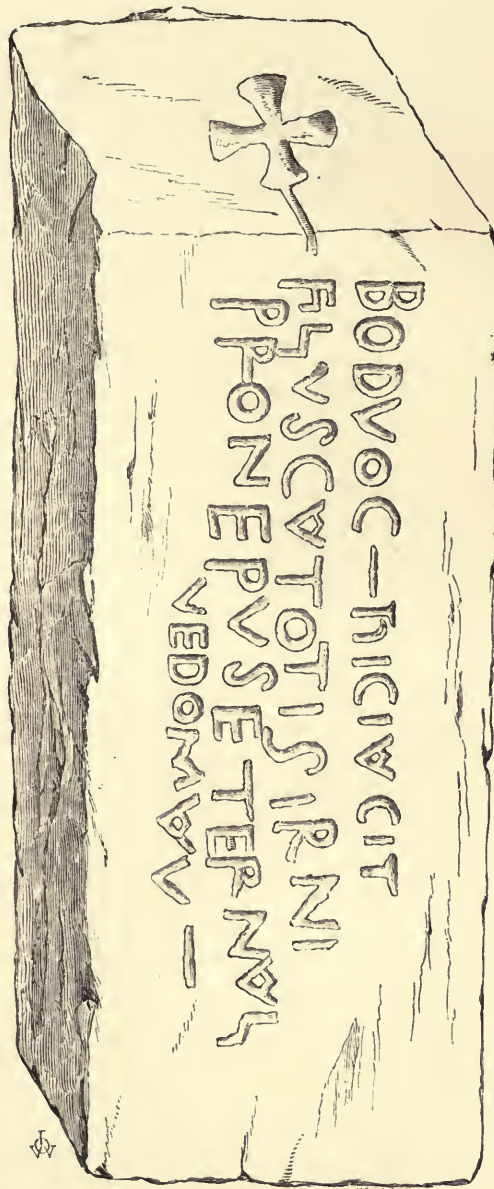 BODVOC — hICIACIT
FILIVSCATOTISIRNI
PRONEPVSETERNALI
VEDOMAV —